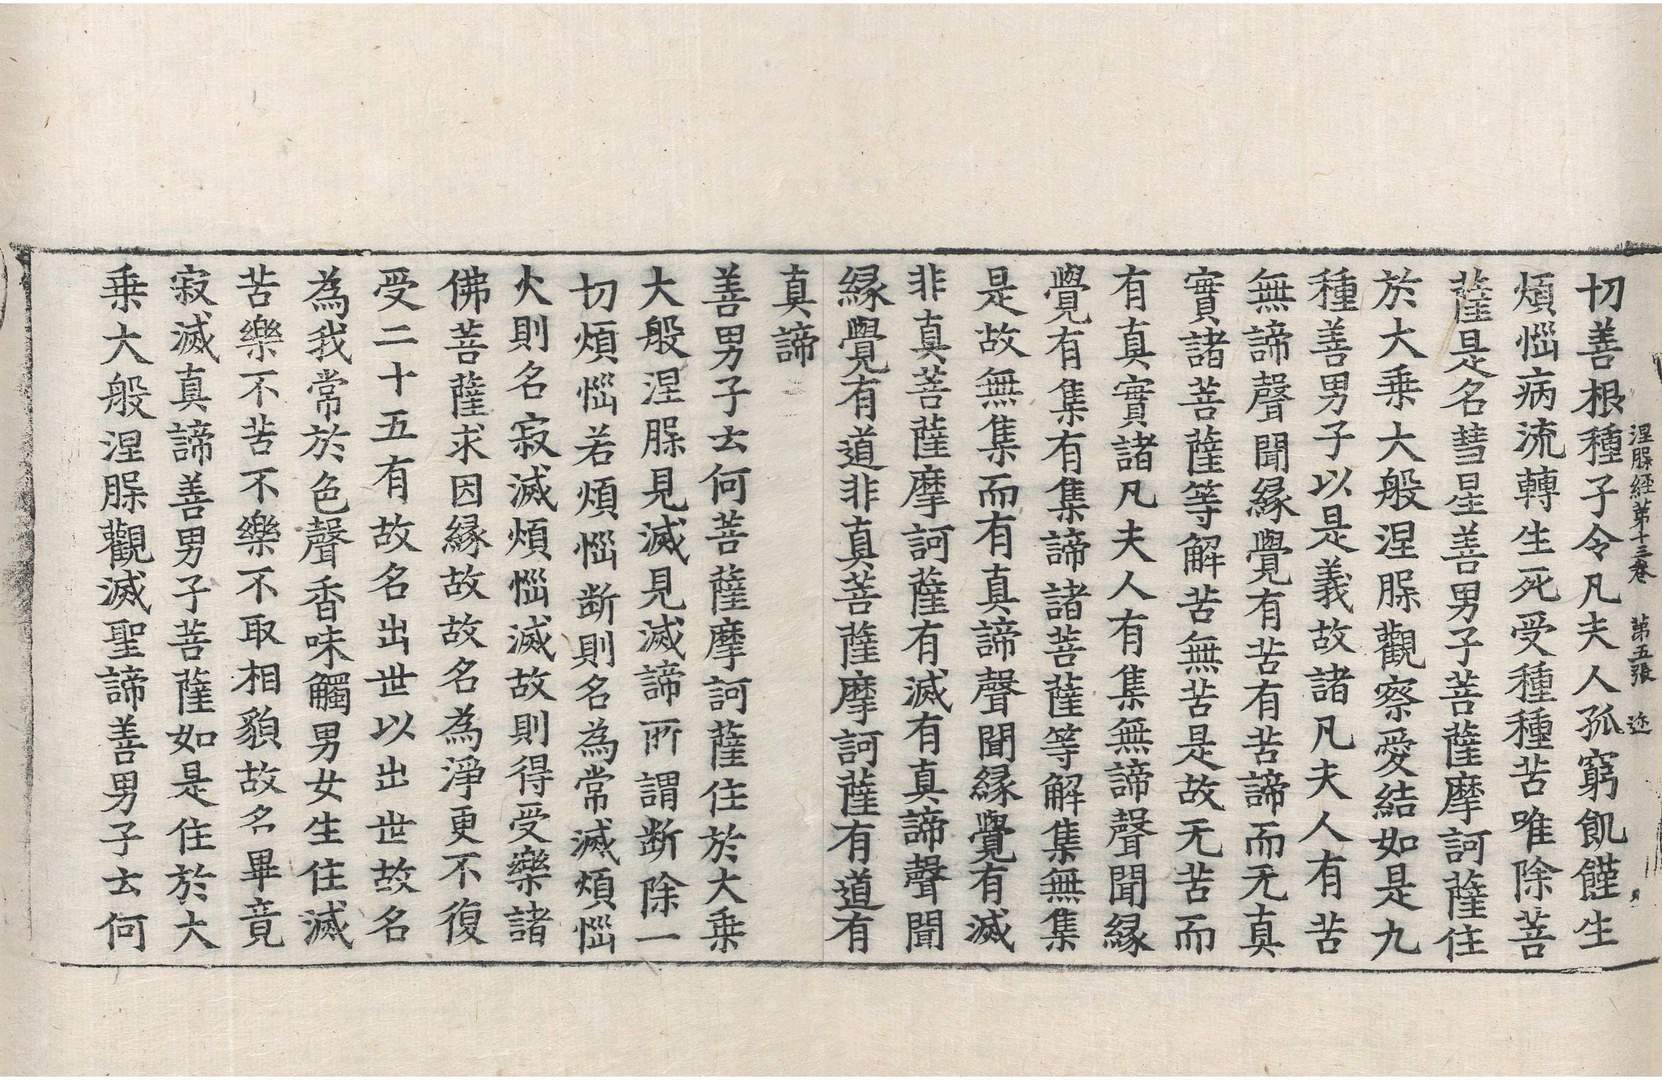 涅槃経第十三卷　第五張　迹
切善根種子令凡夫人孤窮飢饉生
煩惱病流轉生死受種種苦唯除菩
薩是名彗星善男子菩薩摩訶薩住
於大乗大般涅槃觀察愛結如是九
種善男子以是義故諸凡夫人有苦
無諦聲聞縁覺有苦有苦諦而无真
實諸菩薩等解苦無苦是故无苦而
有真實諸凡夫人有集無諦聲聞縁
覺有集有集諦諸菩薩等解集無集
是故無集而有真諦聲聞縁覺有滅
非真菩薩摩訶薩有滅有真諦聲聞
縁覺有道非真菩薩摩訶薩有道有
真諦
善男子云何菩薩摩訶薩住於大乗
大般涅槃見滅見滅諦所謂断除一
切煩惱若煩惱断則名為常滅煩惱
火則名寂滅煩惱滅故則得受樂諸
佛菩薩求因縁故故名為淨更不復
受二十五有故名出世以出世故名
為我常於色聲香味觸男女生住滅
苦樂不苦不樂不取相貌故名畢竟
寂滅真諦善男子菩薩如是住於大
乗大般涅槃觀滅聖諦善男子云何